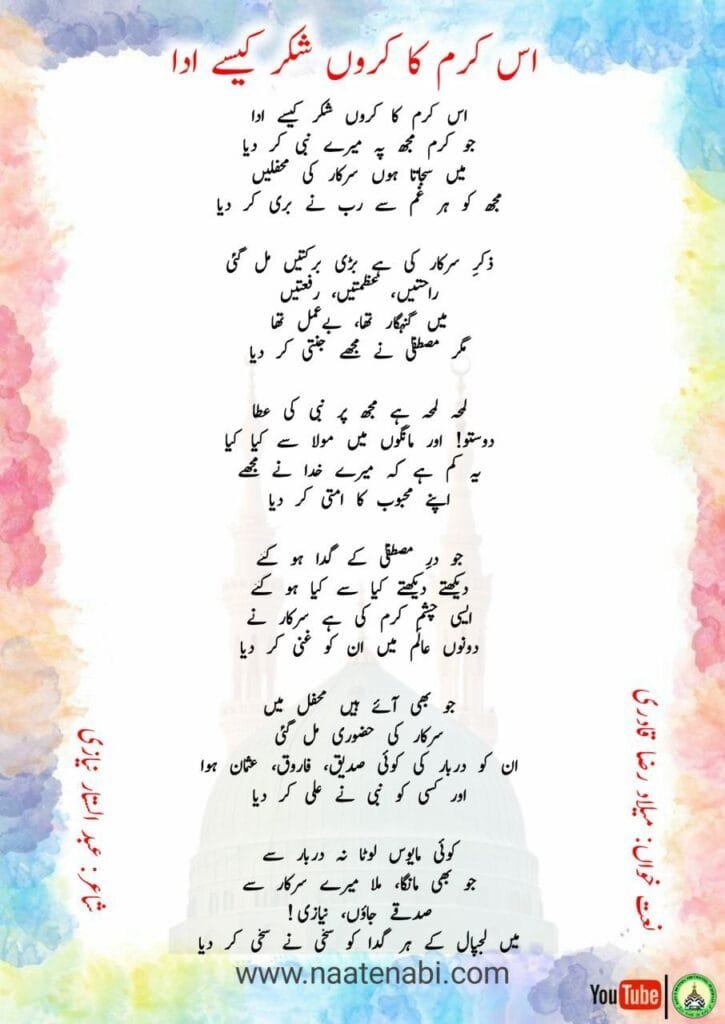 اس کرم کا کروں شکر کیسے ادا
اس کرم کا کروں شکر کیسے ادا
جو کرم مجھ پہ میرے نبی کر دیا
میں سجاتا ہوں سرکار کی محفلیں
مجھ کو ہر غم سے رب نے بری کر دیا
ذکرِ سرکار کی ہے بڑی برکتیں مل گئی
راحتیں، عظمتیں، رفعتیں
میں گنہگار تھا، بےعمل تھا
مگر مصطفیٰ نے مجھے جنتی کر دیا
لمحہ لمحہ ہے مجھ پر نبی کی عطا
دوستو! اور مانگوں میں مولا سے کیا کیا
یہ کم ہے کہ میرے خدا نے مجھے
اپنے محبوب کا امتی کر دیا
جو درِ مصطفیٰ کے گدا ہو گئے
دیکھتے دیکھتے کیا سے کیا ہو گئے
ایسی چشمِ کرم کی ہے سرکار نے
دونوں عالَم میں ان کو غنی کر دیا
جو بھی آئے ہیں محفل میں
سرکار کی حضوری مل گئی
ان کو دربار کی کوئی صدیق، فاروق، عثمان ہوا
اور کسی کو نبی نے علی کر دیا
کوئی مایوس لوٹا نہ دربار سے
جو بھی مانگا، ملا میرے سرکار سے
صدقے جاؤں، نیازی!
میں لجپال کے ہر گدا کو سخی نے سخی کر دیا
نعت خواں: میلاد رضا قادری
شاعر: عبد الستار نیازی
www.naatenabi.com
YouTube